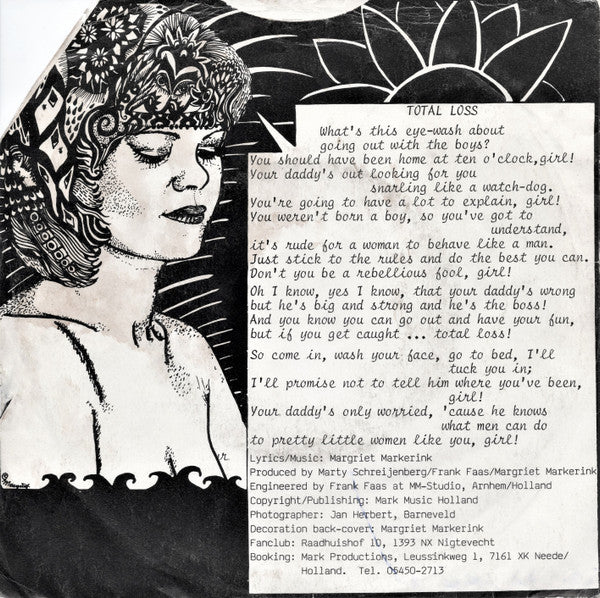 TOTAL LOSS
What's this eye-wash about
going out with the boys?
You should have been home at ten o'clock,girl!
Your daddy's out looking for you
snarling like a watch-dog.
You're going to have a lot to explain, girl!
You weren't born a boy, so you've got to
understand,
it's rude for a woman to behave like a man.
Just stick to the rules and do the best you can.
Don't you be a rebellious fool, girl!
Oh I know, yes I know, that your daddy's wrong
but he's big and strong and he's the boss!
And you know you can go out and have your fun,
but if you get caught ... total loss!
So come in, wash your face, go to bed, I'll
tuck you in;
I'll promise not to tell him where you've been,
girl!
Your daddy's only worried, 'cause he knows
what men can do
to pretty little women like you, girl!
Lyrics/Music: Margriet Markerink
Produced by Marty Schreijenberg/Frank Faas/Margriet Markerink
Engineered by Frank Faas at MM-Studio, Arnhem/Holland
Copyright/Publishing: Mark Music Holland
Photographer: Jan Herbert, Barneveld
Decoration back-cover: Margriet Markerink
Fanclub: Raadhuishof 10, 1393 NX Nigtevecht
Booking: Mark Productions, Leussinkweg 1, 7161 XK Neede/
Holland. Tel. 05450-2713